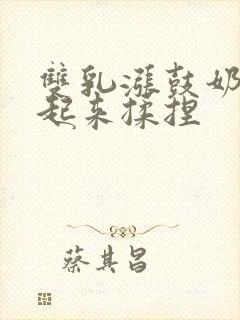 雙乳漲鼓奶
起来揉捏
蔡其昌